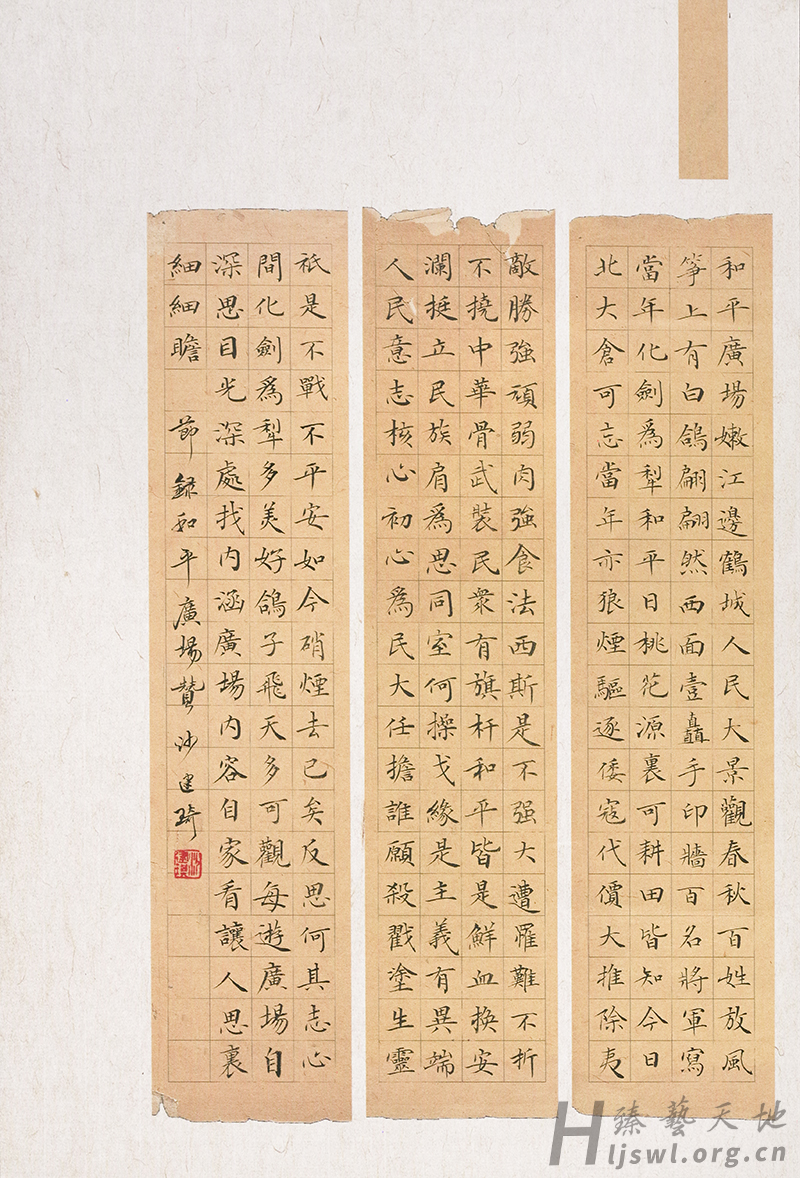 和平廣場嫩江邊鶴城人民大景觀春秋百姓放風
筝上有白鴿翩翩然西面壹矗手印牆百名將軍寫
當年化劍爲犁和平日桃花源裏可耕田皆知今日
北大倉可忘當年亦狼煙驅逐倭寇代價大推除夷
敵勝強頑弱肉強食法西斯是不强大遭罹難不折
不撓中華骨武裝民衆有旗杆和平皆是鮮血换安
瀾挺立民族肩爲思同室何操戈緣是主義有異端
人民意志核心初心爲民大任擔誰願殺戮塗生靈
祇是不戰不平安如今硝煙去已矣反思何其志心
間化劍爲犁多美好鴿子飛天多可觀每遊廣場自
深思目光深處找内涵廣場内容自家看讓人思裏
細細瞻 節録和平廣場贊 沙建琦
臻藝天地
Hljswl.org.cn